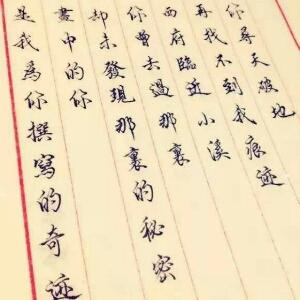 你尋天破地
再找不到我痕迹
西府臨近小溪
你曾去過那裏
却未發現那裏的秘密
畫中的你
是我為你撰寫的奇迹